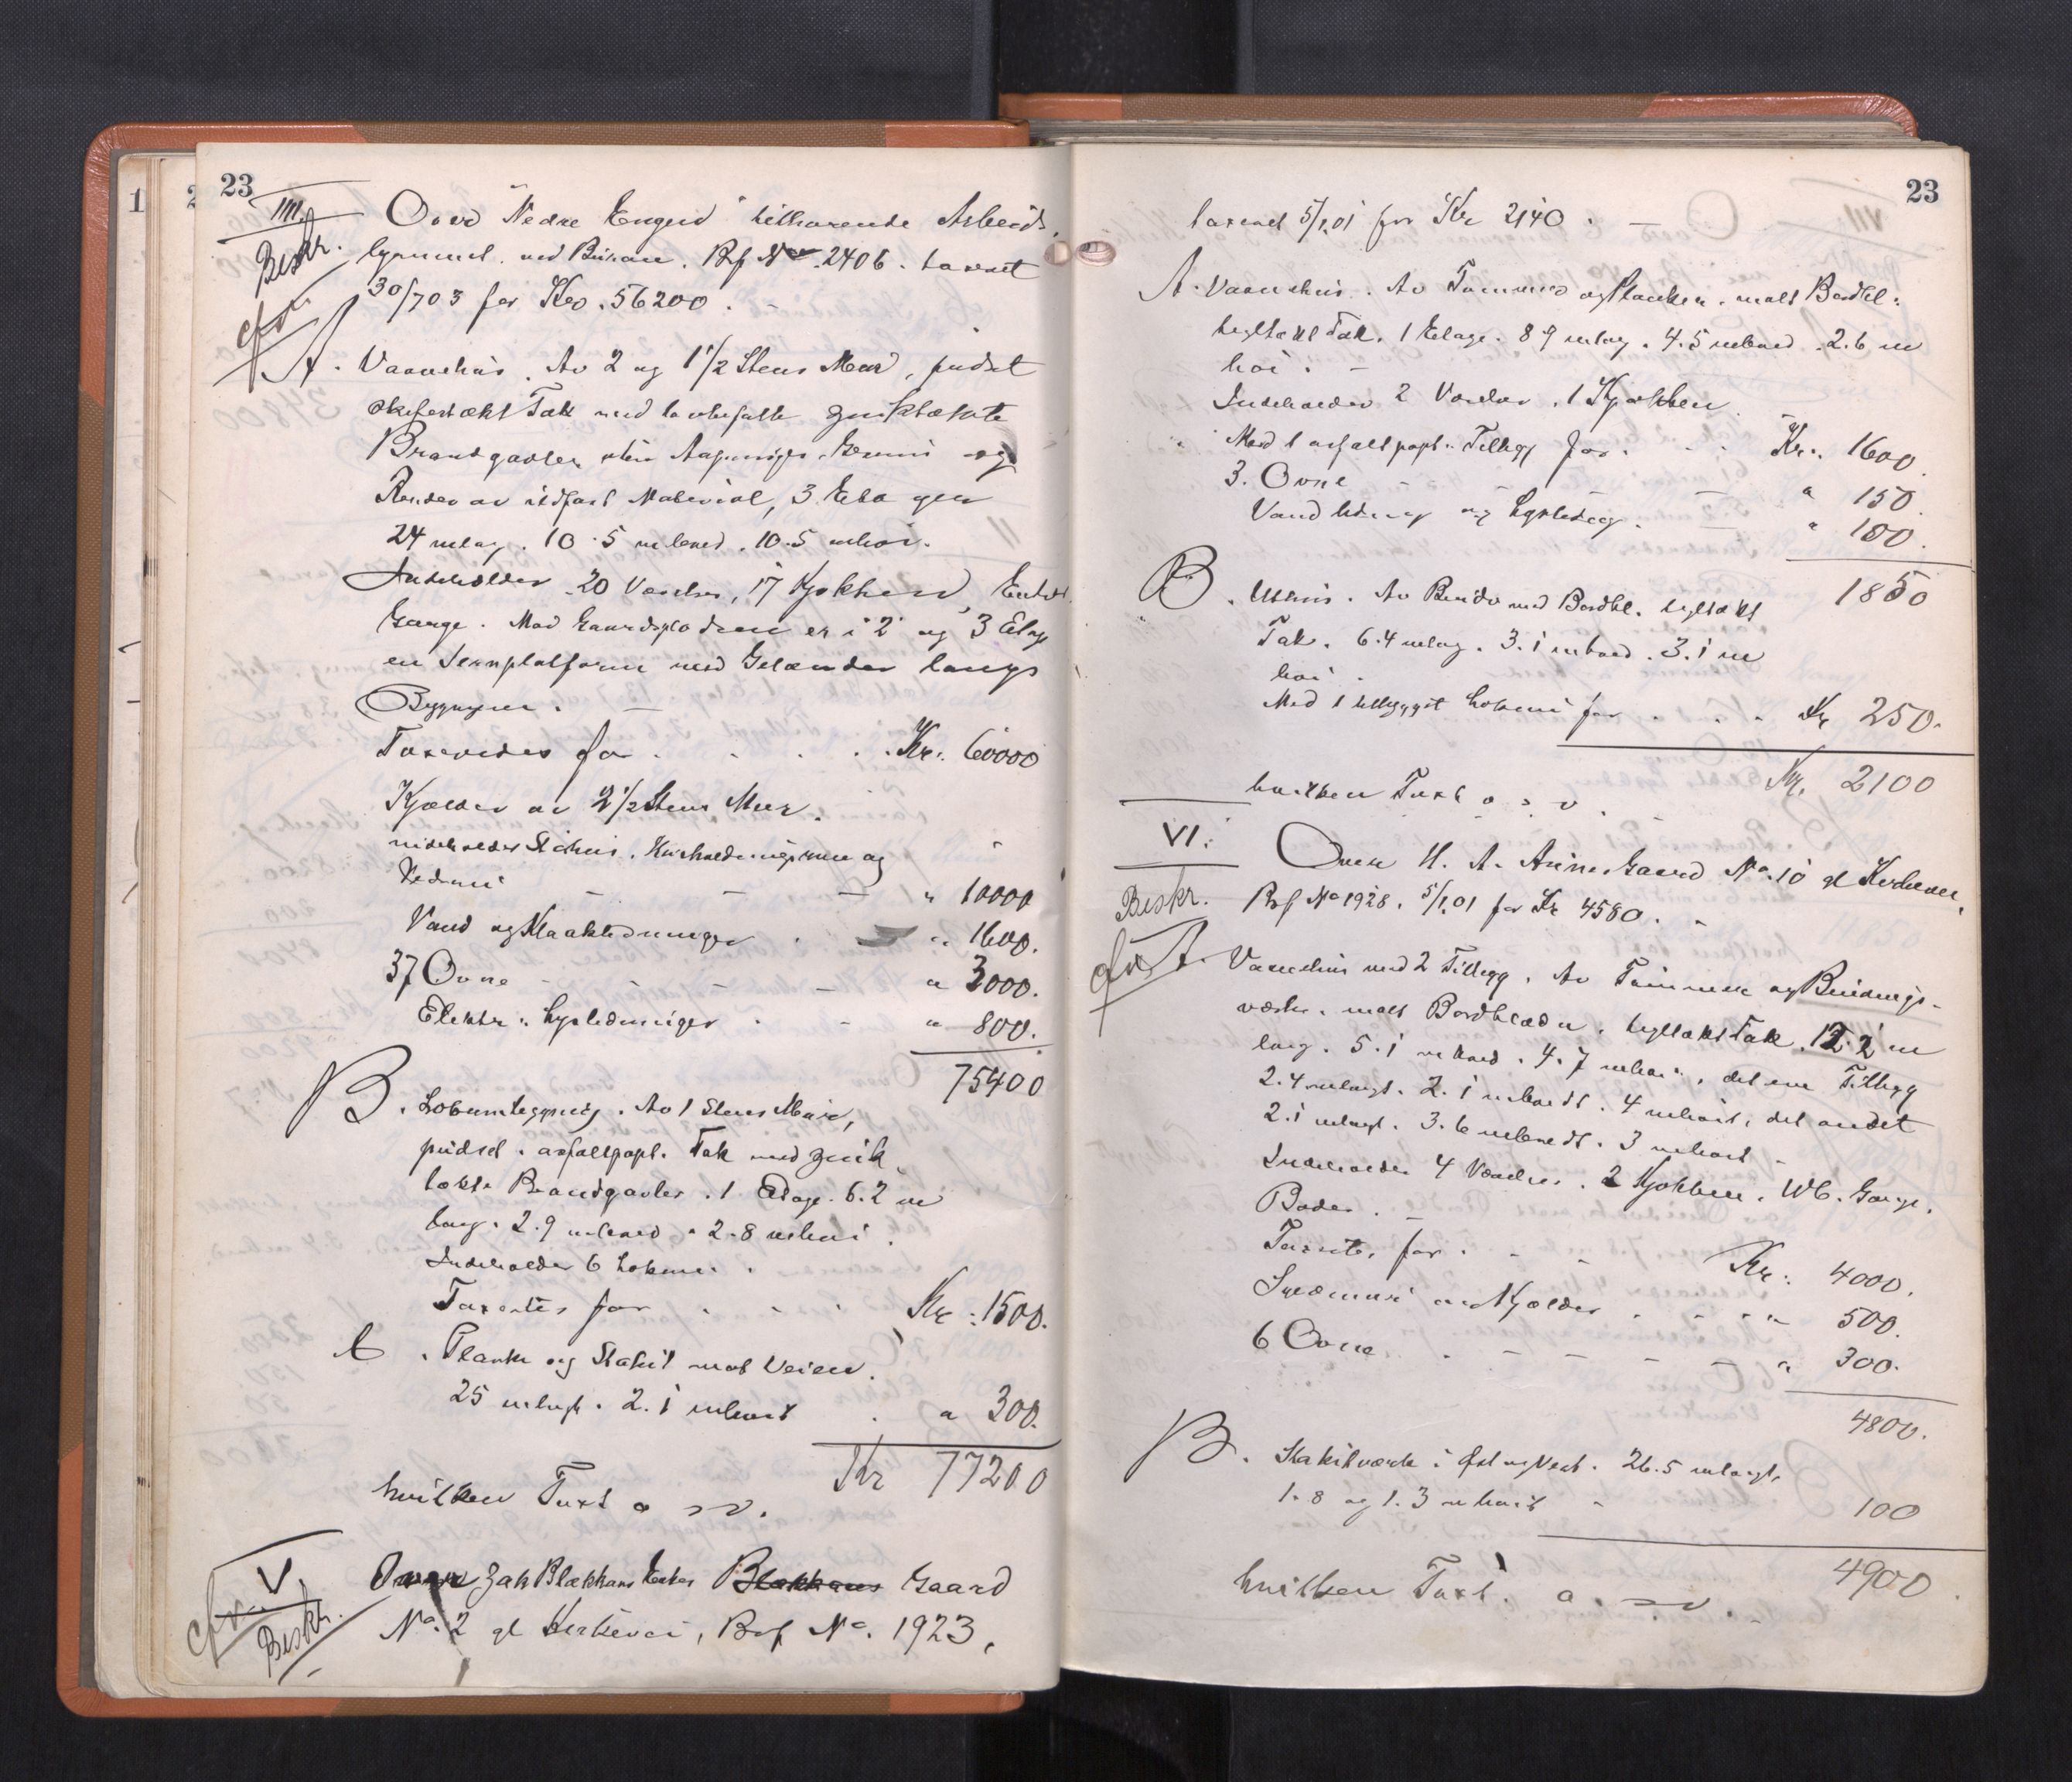 23
IIII.
Beskr.
cfr
Over "Nedre Engen" tilhørende Arbeids
med Brf No. 2406. taxeret
30/7 03 for Kr. 56200.
A. Vaanehus. Av 2 og 1 1/2 Stens Mur, pudset
skifertækt Tak med zinktækte
Brandgavler og
Render av ildfast Material, 3 Etagen
24 m lang. 10.5 m bred. 10.5 m høi.
Indeholder 20 Værelser, 17 Kjøkkener,
Gange. Mod er i 2 og 3 Etage
en Jernplatform med Gelænder langs
Bygningen.
Taxeredes for . . . . Kr. 60000
Kjælder av 2 1/2 Stens Mur.
indeholder og
" 10000
Vand og Kloakledninger " 1600.
37 Ovne " 3000.
Elektr. Lysledninger " 800.
75400
B. Av 1 Stens Mur,
pudset. asfaltpapt. Tak med zink
tækte Brandgavler. 1 Etage. 6.2 m
lang. 2.9 m bred. 2.8 m høi.
Indeholder 6 Lokumer.
Taxertes for Kr. 1500.
C. Planke og Stakit mot Veien.
25 m langt. 2.1 m høit " 300.
Kr 77200
hvilken Taxt o s v.
V.
cfr.
Beskr.
Over Zak Blækhans Enkes Blækhans Gaard
No. 2 gl Kirkevei, Brf No. 1923,
23
taxeret 5/1 01 for Kr 2140.
A. Vaanehus. Av Tømmer og Planker. malt Bordkl.
tegltækt Tak. 1 Etage. 8.9 m lang. 4.5 m bred. 2.6 m
høi.
Indeholder 2 Værelser. 1 Kjøkken.
Med 1 asfaltpapt. Tillegg for Kr. 1600.
3. Ovne " 150.
Vandledning og Lysledning. " 100.
1850
B. Uthus. Av Bindv. med Bordkl. tegltækt
Tak. 6.4 m lang. 3.1 m bred. 3.1 m
høi.
Med 1 tilbygget Lokum for Kr 250.
Kr. 2100
hvilken Taxt o s v.
VI.
Beskr.
cfr
Over H. A. Gaard No. 10 gl Kirkevei,
Brf No 1928. 5/1 01 for Kr 4580.
A. Vaanehus med 2 Tillegg. Av Tømmer og Bindings-
værk. malt Bordklædn. tegltækt Tak. 12.2 m
lang. 5.1 m bred. 4.7 m høi, det ene Tillegg
2.4 m langt. 2.1 m bredt. 4 m høit, det andet
2.1 m langt. 3.6 m bredt. 3 m høit.
Indeholder 4 Værelser. 2 Kjøkken. WC. Gange.
Boder.
Taxertes for Kr. 4000.
Grundmur med Kjælder " 500.
6 Ovne " 300.
4800.
B. Stakitværk i Øst og Vest. 26.5 m langt,
1.8 og 1.3 m høit 100
4900
hvilken Taxt. o. s v.